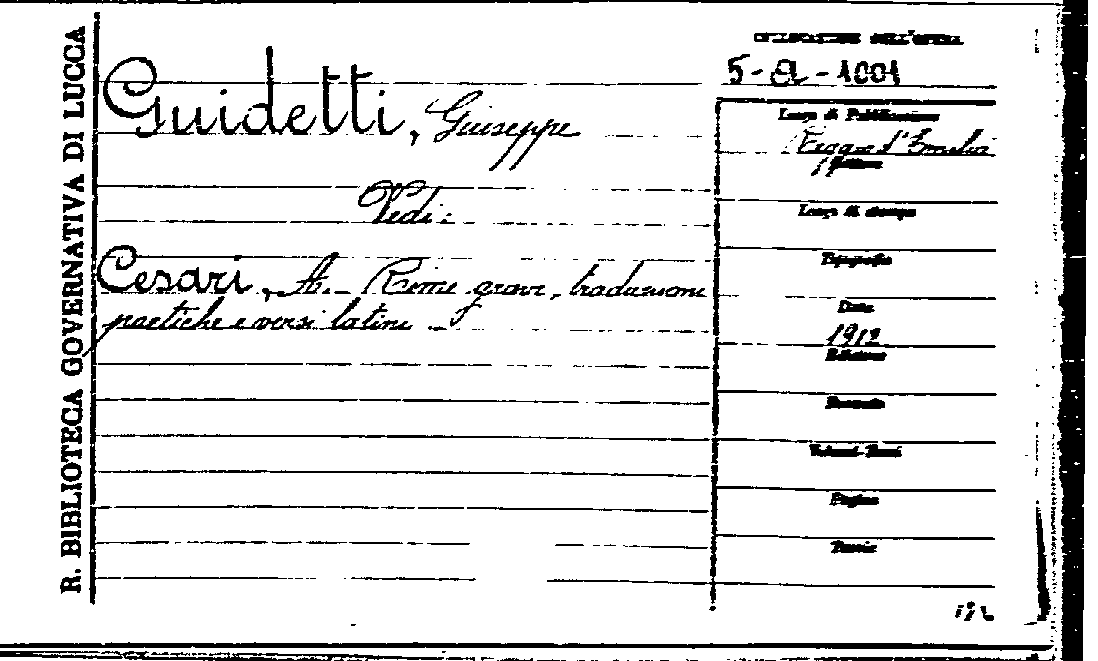 R. BIBLIOTECA GOVERNATIVA DI LUCCA
Guidetti, Giuseppe
Vedi:
Cesari, A. - Rime gravi, traduzione
poetiche e versi latini -
COLLOCAZIONE DELL'OPERA
5-a-1001
Luogo di Pubblicazione
Reggio d'Emilia
Editore
Luogo di stampa
Tipografia
Data
1912
Edizione
Formato
Volumi-Tomi
Pagine
Tavole